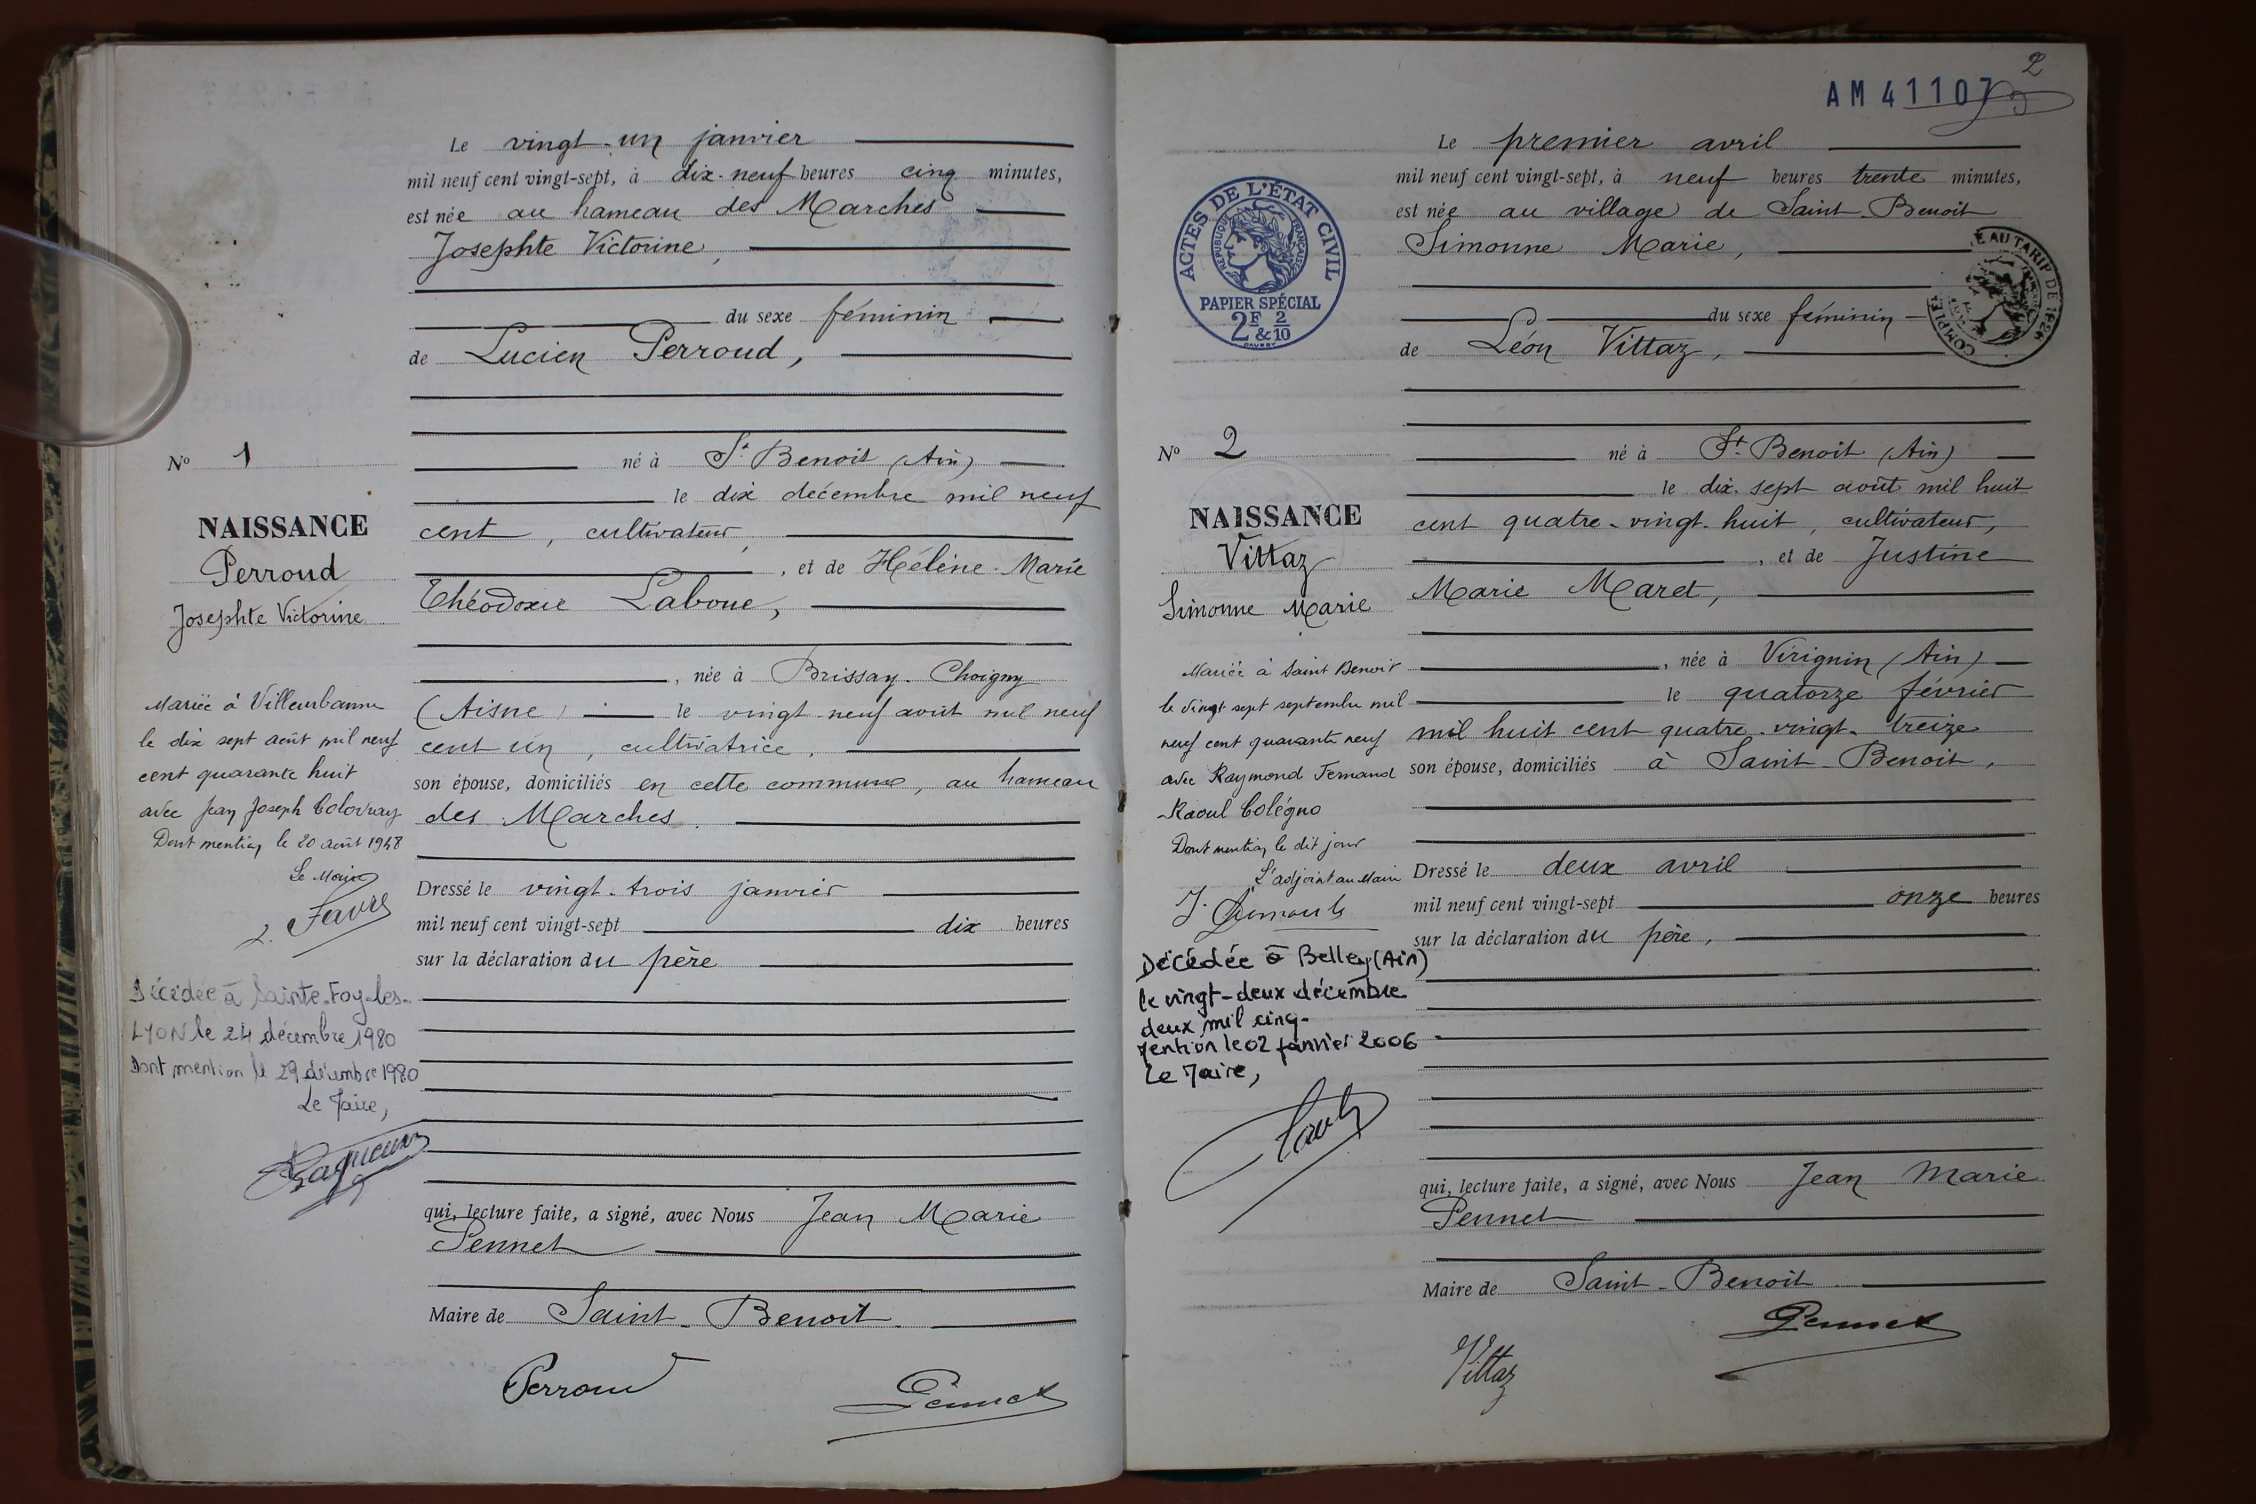 Le vingt-un janvier
mil neuf cent vingt-sept, à dix-neuf heures cinq minutes,
est née au hameau des Marches
Josephte Victorine,
du sexe féminin
de Lucien Perroud,
N° 1
né à St Benoit (Ain)
le dix décembre mil neuf
NAISSANCE
cent, cultivateur,
Perroud
, et de Hélène Marie
Josephte Victorine
Théodoxie Laboue,
, née à Brissay-Choigny
(Aisne) le vingt-neuf août mil neuf
cent un, cultivatrice,
son épouse, domiciliés en cette commune, au hameau
des Marches.
Mariée à Villeurbanne
le dix sept août mil neuf
cent quarante huit
avec Jean Joseph Colovray
Dont mention le 20 août 1948
Le Maire
J. Favre
Dressé le vingt-trois janvier
mil neuf cent vingt-sept dix heures
sur la déclaration du père
Décédée à Sainte-Foy-les-
LYON le 24 décembre 1980
Dont mention le 29 décembre 1980
Le Maire,
qui, lecture faite, a signé, avec Nous Jean Marie
Pennet
Maire de Saint-Benoit.
Perroud
Pennet
2
AM 41107
Le premier avril
mil neuf cent vingt-sept, à neuf heures trente minutes,
est née au village de Saint-Benoit
Simonne Marie,
ACTES DE L'ÉTAT CIVIL
RÉPUBLIQUE FRANÇAISE
PAPIER SPÉCIAL
2F & 2/10
COMPLÉ
É AU TARIF DE 1926
du sexe féminin
de Léon Vittaz,
N° 2
né à St Benoit (Ain)
le dix-sept août mil huit
NAISSANCE
cent quatre-vingt-huit, cultivateur,
Vittaz
, et de Justine
Simonne Marie
Marie Maret,
, née à Virignin (Ain)
le quatorze février
mil huit cent quatre-vingt-treize
son épouse, domiciliés à Saint-Benoit,
Mariée à Saint Benoit
le vingt sept septembre mil
neuf cent quarante neuf
avec Raymond Fernand
Raoul Colégno
Dont mention le dit jour
L'adjoint au Maire
Dressé le deux avril
mil neuf cent vingt-sept onze heures
sur la déclaration du père,
Décédée à Belley (Ain)
le vingt-deux décembre
deux mil cinq-
Mention le 02 janvier 2006
Le Maire,
qui, lecture faite, a signé, avec Nous Jean Marie
Pennet
Maire de Saint-Benoit
Pennet
Vittaz